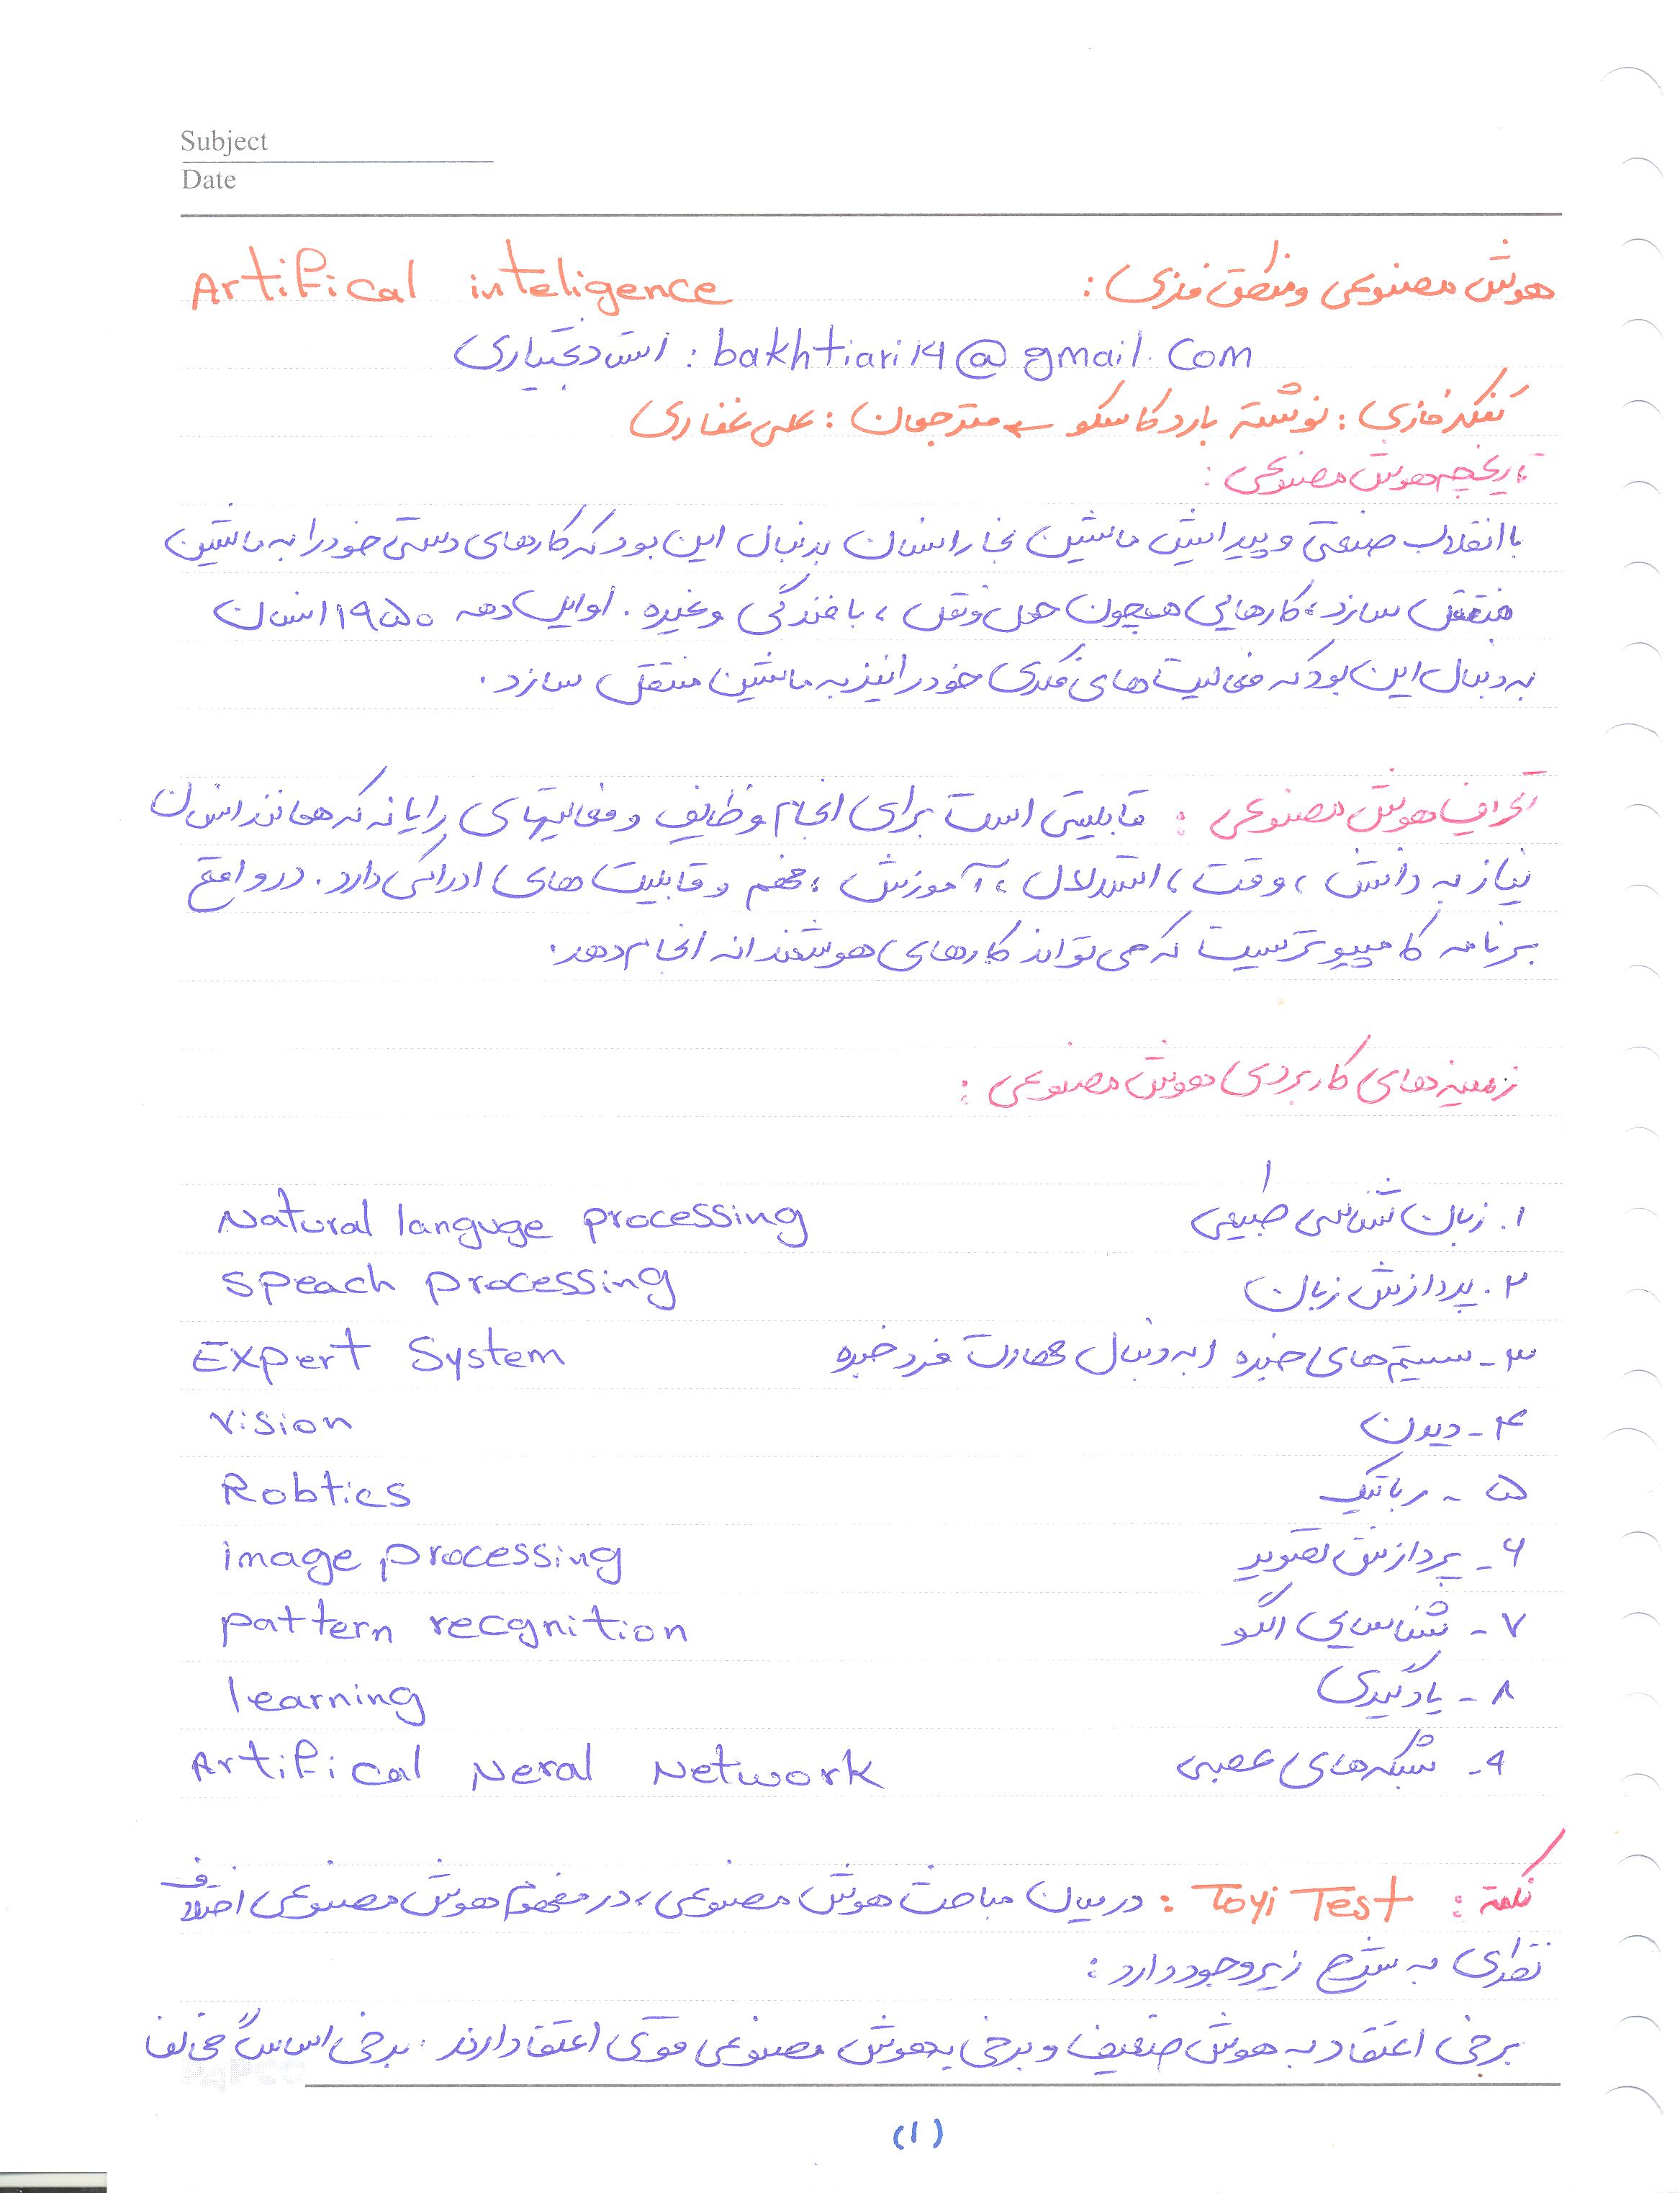 Subject
Date
هوش مصنوعی و منطق فازی : Artifical inteligence
استاد بختیاری : bakhtiari14@gmail.com
تفکر فازی : نوشته بارد کاسکو ← مترجمان : علی غفاری
تاریخچه هوش مصنوعی :
با انقلاب صنعتی و پیدایش ماشین بخار انسان بدنبال این بود که کارهای دستی خود را به ماشین
منتقل سازد ، کارهایی همچون حمل و نقل ، بافندگی و غیره . اوایل دهه ۱۹۵۰ انسان
به دنبال این بود که فعالیت های فکری خود را نیز به ماشین منتقل سازد .
تعریف هوش مصنوعی : قابلیتی است برای انجام وظایف و فعالیتهای رایانه که همانند انسان
نیاز به دانش ، وقت ، استدلال ، آموزش ، فهم و قابلیت های ادراکی دارد . در واقع
برنامه کامپیوتریست که می تواند کارهای هوشمندانه انجام دهد .
زمینه های کاربردی هوش مصنوعی :
۱. زبان شناسی طبیعی Natural languge processing
۲. پردازش زبان speach processing
۳- سیستم های خبره ( به دنبال مهارت فرد خبره Expert System
۴- دیدن vision
۵- رباتیک Robtics
۶- پردازش تصویر image processing
۷- شناسایی الگو pattern recgnition
۸- یادگیری learning
۹- شبکه های عصبی Artifical Neral Network
نکته : Toyi Test : در میان مباحث هوش مصنوعی ، در مفهوم هوش مصنوعی اختلاف
نظری به شرح زیر وجود دارد :
برخی اعتقاد به هوش ضعیف و برخی به هوش مصنوعی قوی اعتقاد دارند . برخی اساساً مخالف
(۱)